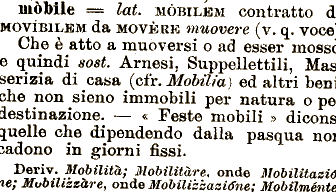 mòbile = lat. MÒBILEM contratto d
MOVÍBILEM da MOVÈRE muovere (v. q. voce
Che è atto a muoversi o ad esser mosso
e quindi sost. Arnesi, Suppellettili, Mas
serizia di casa (cfr. Mobilia) ed altri beni
che non sieno immobili per natura o pe
destinazione. — « Feste mobili » dicons
quelle che dipendendo dalla pasqua non
cadono in giorni fissi.
Deriv. Mobilità; Mobilitàre, onde Mobilitazio
ne; Mobilizzàre, onde Mobilizzazióne; Mobilmént